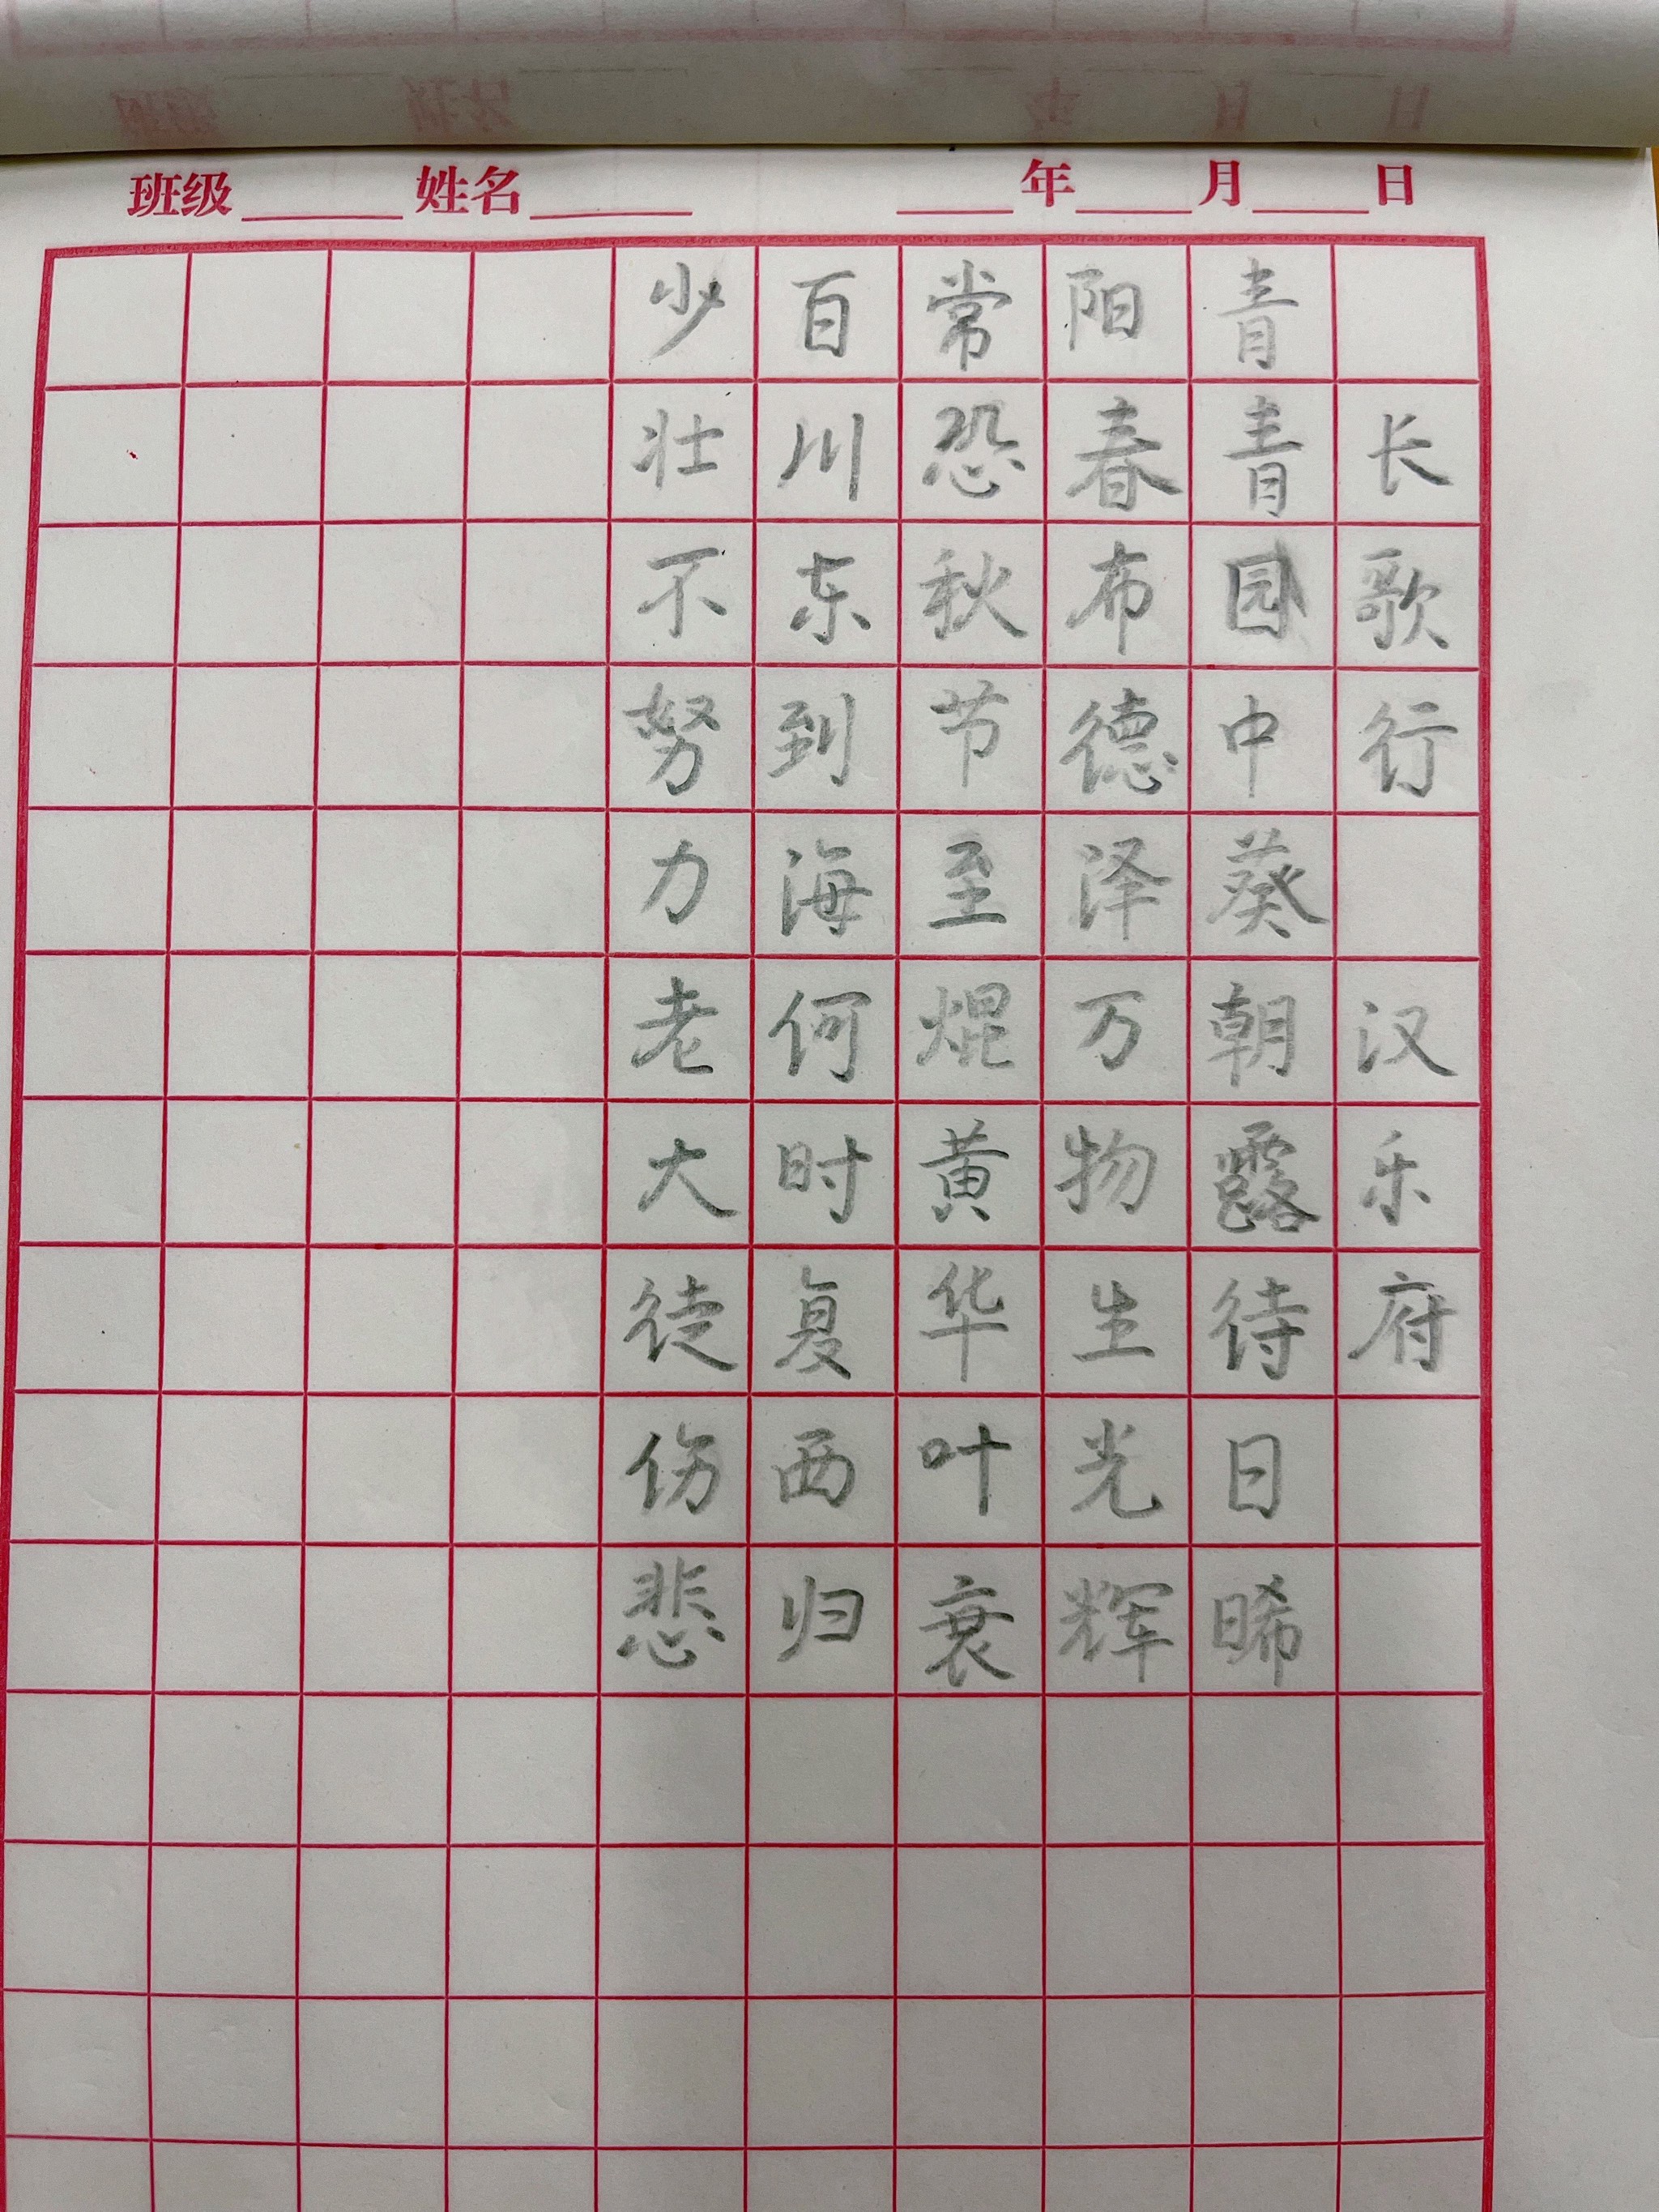 班级 姓名 年 月 日
长歌行 汉乐府
青青园中葵朝露待日晞
阳春布德泽万物生光辉
常恐秋节至焜黄华叶衰
百川东到海何时复西归
少壮不努力老大徒伤悲